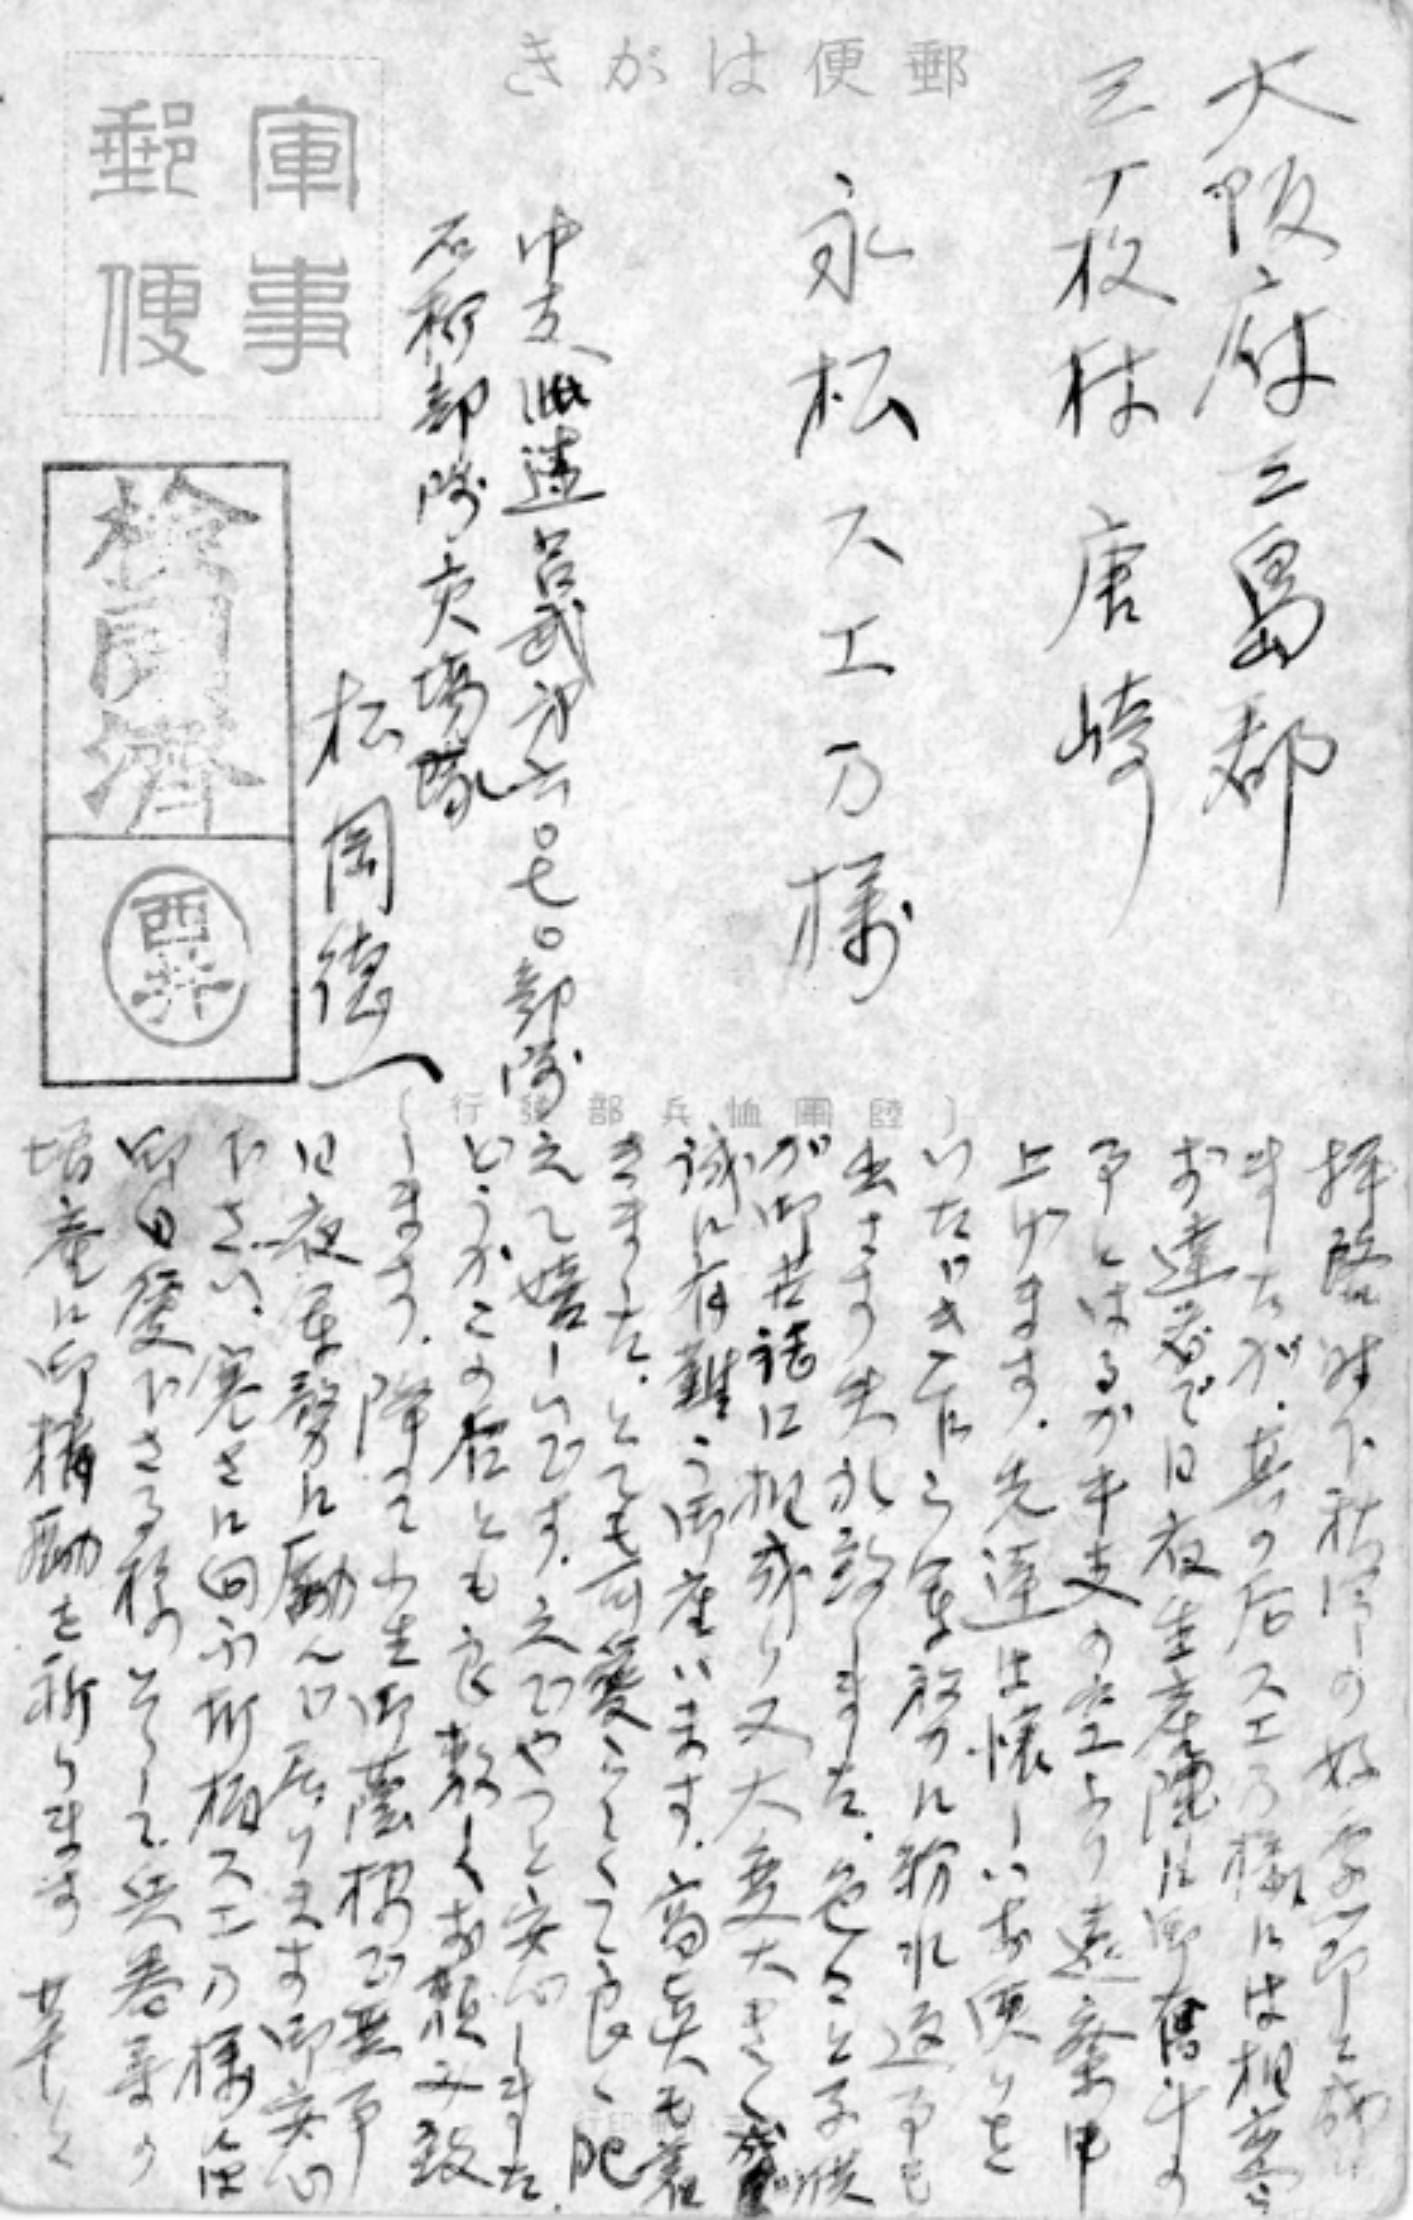 郵便はがき
軍事
郵便
大阪府三島郡
三ヶ牧村唐崎
永松スエ乃様
中支派遣呂武第六〇七〇部隊
石柳部隊
松岡徳一
検閲済
西井
陸軍恤兵部発行
拝啓時下秋深しの好季節と成り
ましたが、其の后スエ乃様には相変らず
お達者で日夜生産陣に御奮斗の
事とはるか中支の空より遠察申
上げます。先達は懐しいお便りを
いただき乍ら軍務に紛れ返事も
出さず失礼致しました。色々と子供
が御世話に相成り又大変大きく成
誠に有難う御座います。写真も着
きました。とても可愛らしくて良く肥
えて嬉しいです。之でやっと安心しました。
どうかこの后とも良敷くお頼み致
します。降って小生御蔭様で無事
日夜軍務に励んで居ります御安心
下さい。寒さに向ふ折柄スエ乃様
御自愛下さる様のそして
増産に御精励を祈ります 草々